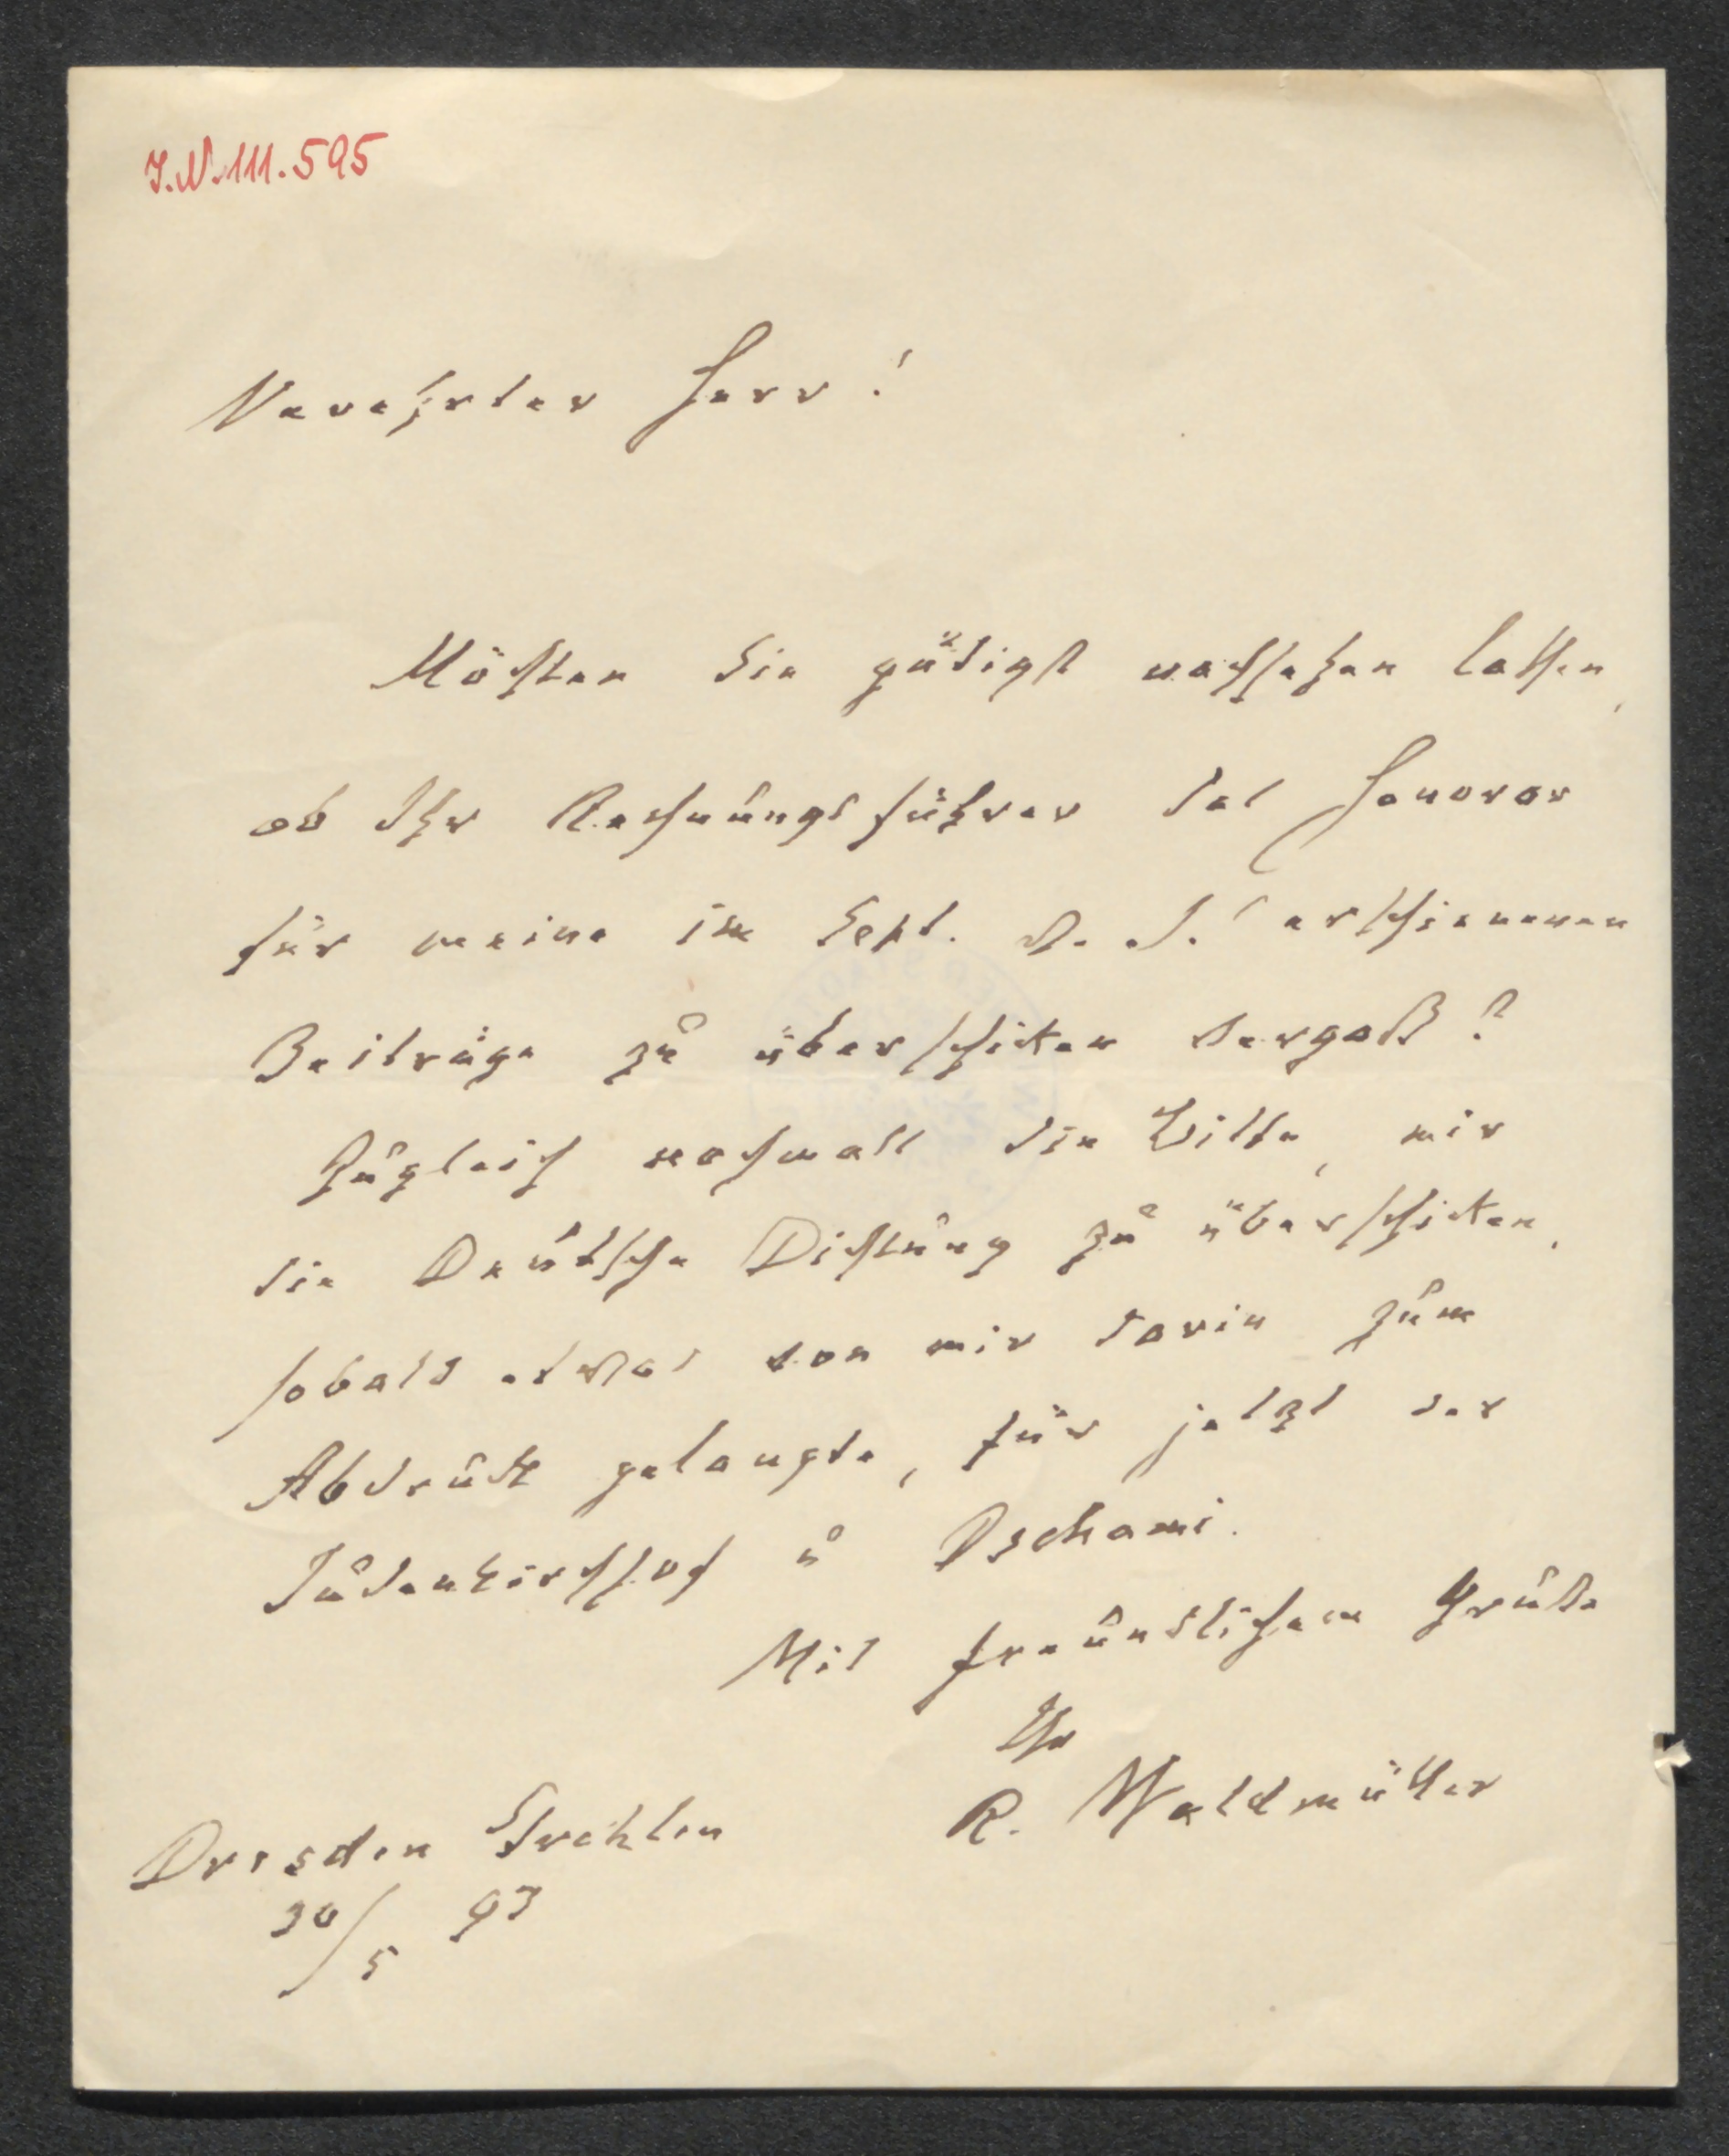 J.N. 111.595
Verehrter Herr!
Möchten Sie gütigst nachsehen lassen,
ob Ihr Rechnungsführer das Honorar
für meine im Sept. v. J. erschienenen
Beiträge zu überschicken vergaß?
Zugleich nochmals die Bitte, mir
die Deutsche Dichtung zu überschicken,
sobald etwas von mir darin zum
Abdruck gelangte, für jetzt der
Judenkirchhof u Dschami.
Mit freundlichem Gruße
Ihr
R. Waldmüller
Dresden Strehlen
30/5 93